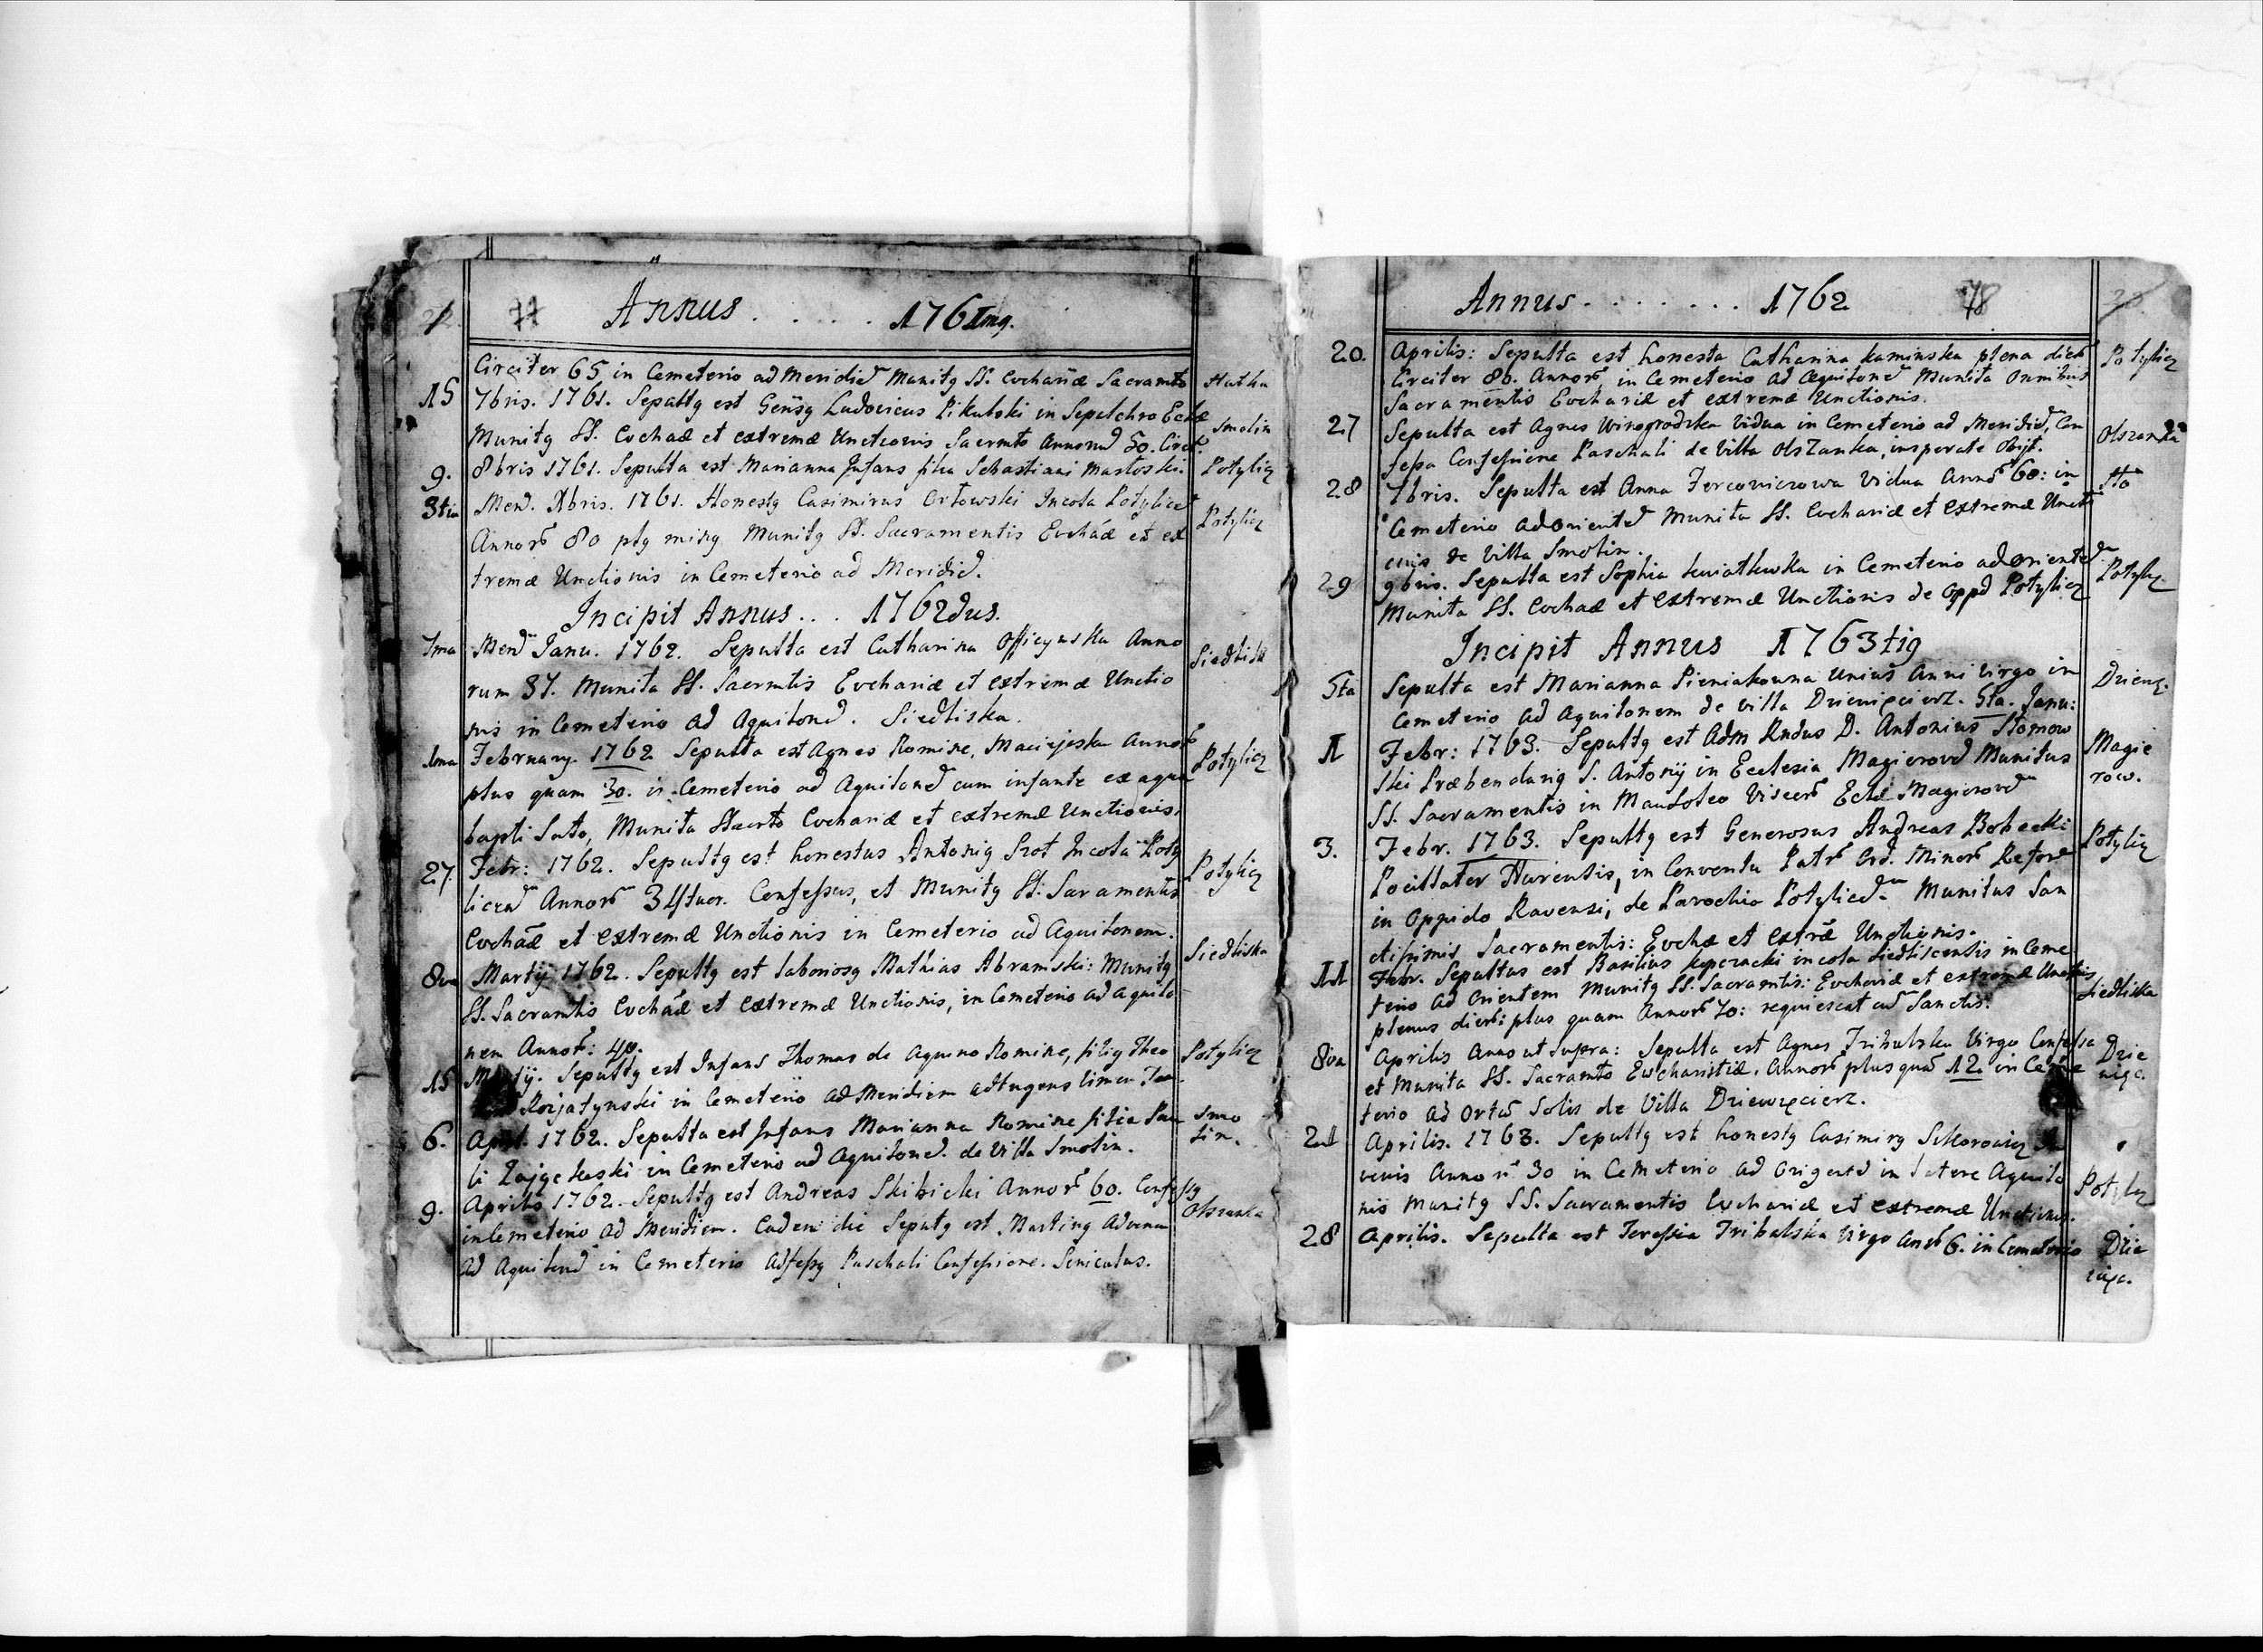 Annus . . . . . 1761mq.
Circiter 65 in Cemeterio ad Meridie Munitq SS. Eucharae Sacramto Hutha
15 7bris. 1761. Sepultq est Gensq Ludovicus Pikulski in Sepulchro Eccle
Munitq SS. Euchae et extremae Unctionis Sacrmto Annorum 50. Circit. Smolin
9. 8bris 1761. Sepulta est Marianna Infans filia Sebastiani Masloski. Potylicz
3tia Men. Xbris. 1761. Honestq Casimirus Orłowski Incola Potylicen
Annor 80 plq minq Munitq SS. Sacramentis Euchae et ex Potylicz
tremae Unctionis in Cemeterio ad Meridie.
Incipit Annus . . . 1762dus.
7ma Men Janu. 1762. Sepulta est Catharina Officynska Anno Siedlisk
rum 37. Munita SS. Sacrmtis Euchariae et extremae Unctio
nis in Cemeterio ad Aquilone. Siedliska.
1ma February. 1762 Sepulta est Agnes Romine, Maciejeska Annor Potylicz
plus quam 30. in Cemeterio ad Aquilone cum infante ex aqua
bapti Sato, Munita SSacrto Euchariae et extremae Unctionis.
27. Febr: 1762. Sepultq est honestus Antoniq Szot Incola Poty Potylicz
licen Annor 34tuor. Confessus, et Munitq SS. Sacramentis
Euchae et extremae Unctionis in Cemeterio ad Aquilonem.
8va Martij 1762. Sepultq est laboriosq Mathias Abramski: Munitq Siedliska
SS. Sacramtis Euchae et extremae Unctionis, in Cemeterio ad aquilo
nem Annor: 40.
15 Martij. Sepultq est Infans Thomas de Aquino Romine, filiq Theo Potylicz
in Cemeterio ad Meridiem attingens limen
6. April. 1762. Sepulta est Infans Marianna Romine filia Pau Smo
li in Cemeterio ad Aquilone. de Villa Smolin. lin.
9. Aprilis 1762. Sepultq est Andreas Skibicki Annor 60. Confessq Olszanka
in Cemeterio ad Meridiem. Eadem die Sepultq est Martinq Advena
ad Aquilone in Cemeterio adfessq Paschali Confessione. Seniculus.
Annus . . . . . . . 1762 78
20. Aprilis: Sepulta est honesta Catharina Kaminska plena dier Potylicz
Circiter 80. Annor, in Cemeterio ad Aequilone Munita Omnibus
Sacramentis Euchariae et extremae Unctionis.
27 Sepulta est Agnes Winogrodzka Vidua in Cemeterio ad Meridie, Con Olszanka
fessa Confessione Paschali de Villa Olszanka, insperate Obijt.
28 7bris. Sepulta est Anna Fercowiczowa Vidua Annor 60: in
Cemeterio ad Oriente Munita SS. Euchariae et extremae Uncti
onis de Villa Smolin.
29 9bris. Sepulta est Sophia Kwiatkwska in Cemeterio ad Oriente Potylicz
Munita SS. Euchae et extremae Unctionis de Oppd Potylicz
Incipit Annus 1763tiq
5ta Sepulta est Marianna Pieniakowna Unius Anni Virgo in Dzieng.
Cemeterio ad Aquilonem de villa Dziewięcierz. 5ta. Janu:
1 Febr: 1763. Sepultq est Adm Rndus D. Antonius Słomow Magie
ski Praebendariq S. Antonij in Ecclesia Magierovd Munitus row.
SS. Sacramentis in Mausoleo Viscer Eclae Magierovd
3. Febr. 1763. Sepultq est Generosus Andreas Bobecki Potylicz
Pocillator in Conventu Patr Ord. Minor Refor
in Oppido Ravensi, de Parochia Potylicen. Munitus San
ctissimis Sacramentis: Euchae et extrae Unctionis.
11 Febr. Sepultus est Basilius Kopczacki incola Siedliscensis in Ceme
terio ad Orientem Munitq SS. Sacramtis: Euchariae et extremae Unctnis Siedliska
plenus dier: plus quam Annor 70: requiescat cu Sanctis.
8va Aprilis Anno ut supra: Sepulta est Agnes Tribulska Virgo Confessa Dzie
et Munita SS. Sacramto Eucharistiae. Annor plus qua 12. in Ceme więc.
terio ad Ortu Solis de Villa Dziewięcierz.
21 Aprilis. 1763. Sepultq est honestq Casimirq Sikorowicz Ju
venis Annor 30 in Cemeterio ad Origente in latere Aquilo Potylicz
nis Munitq SS. Sacramentis Euchariae et extremae Unctionis.
28 Aprilis. Sepulta est Teressia Tribulska Virgo Anor 6. in Cemeterio Dzie
więc.